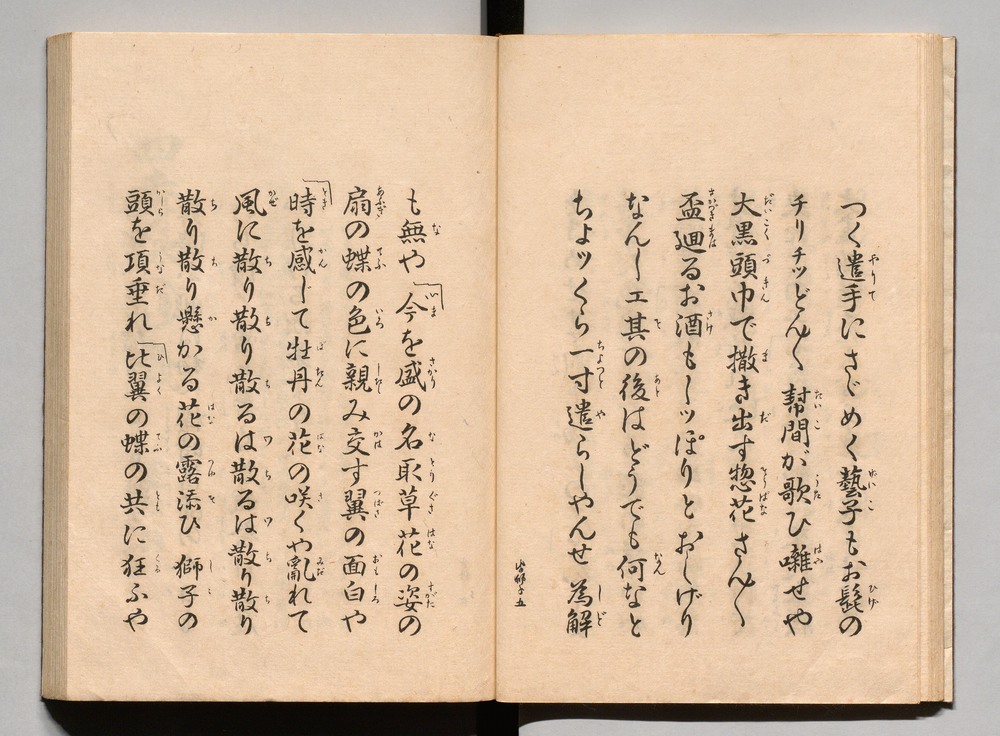 つく遣手にさゞめく藝子もお髭の
チリチツどん〱 幇間が歌ひ囃せや
大黒頭巾で撒き出す惣花さん〱
盃廻るお酒もしツぽりとおしげり
なんしェ其の後はどうでも何なと
ちょッくら一寸遣らしやんせ 為解
も無や「今を盛の名取草 花の姿の
扇の蝶の色に親み交す翼の面白や
「時を感じて牡丹の花の咲くや亂れて
風に散り散り散るは散るは散り散り
散り散り懸かる花の露添ひ 獅子の
頭を項垂れ「比翼の蝶の共に狂ふや